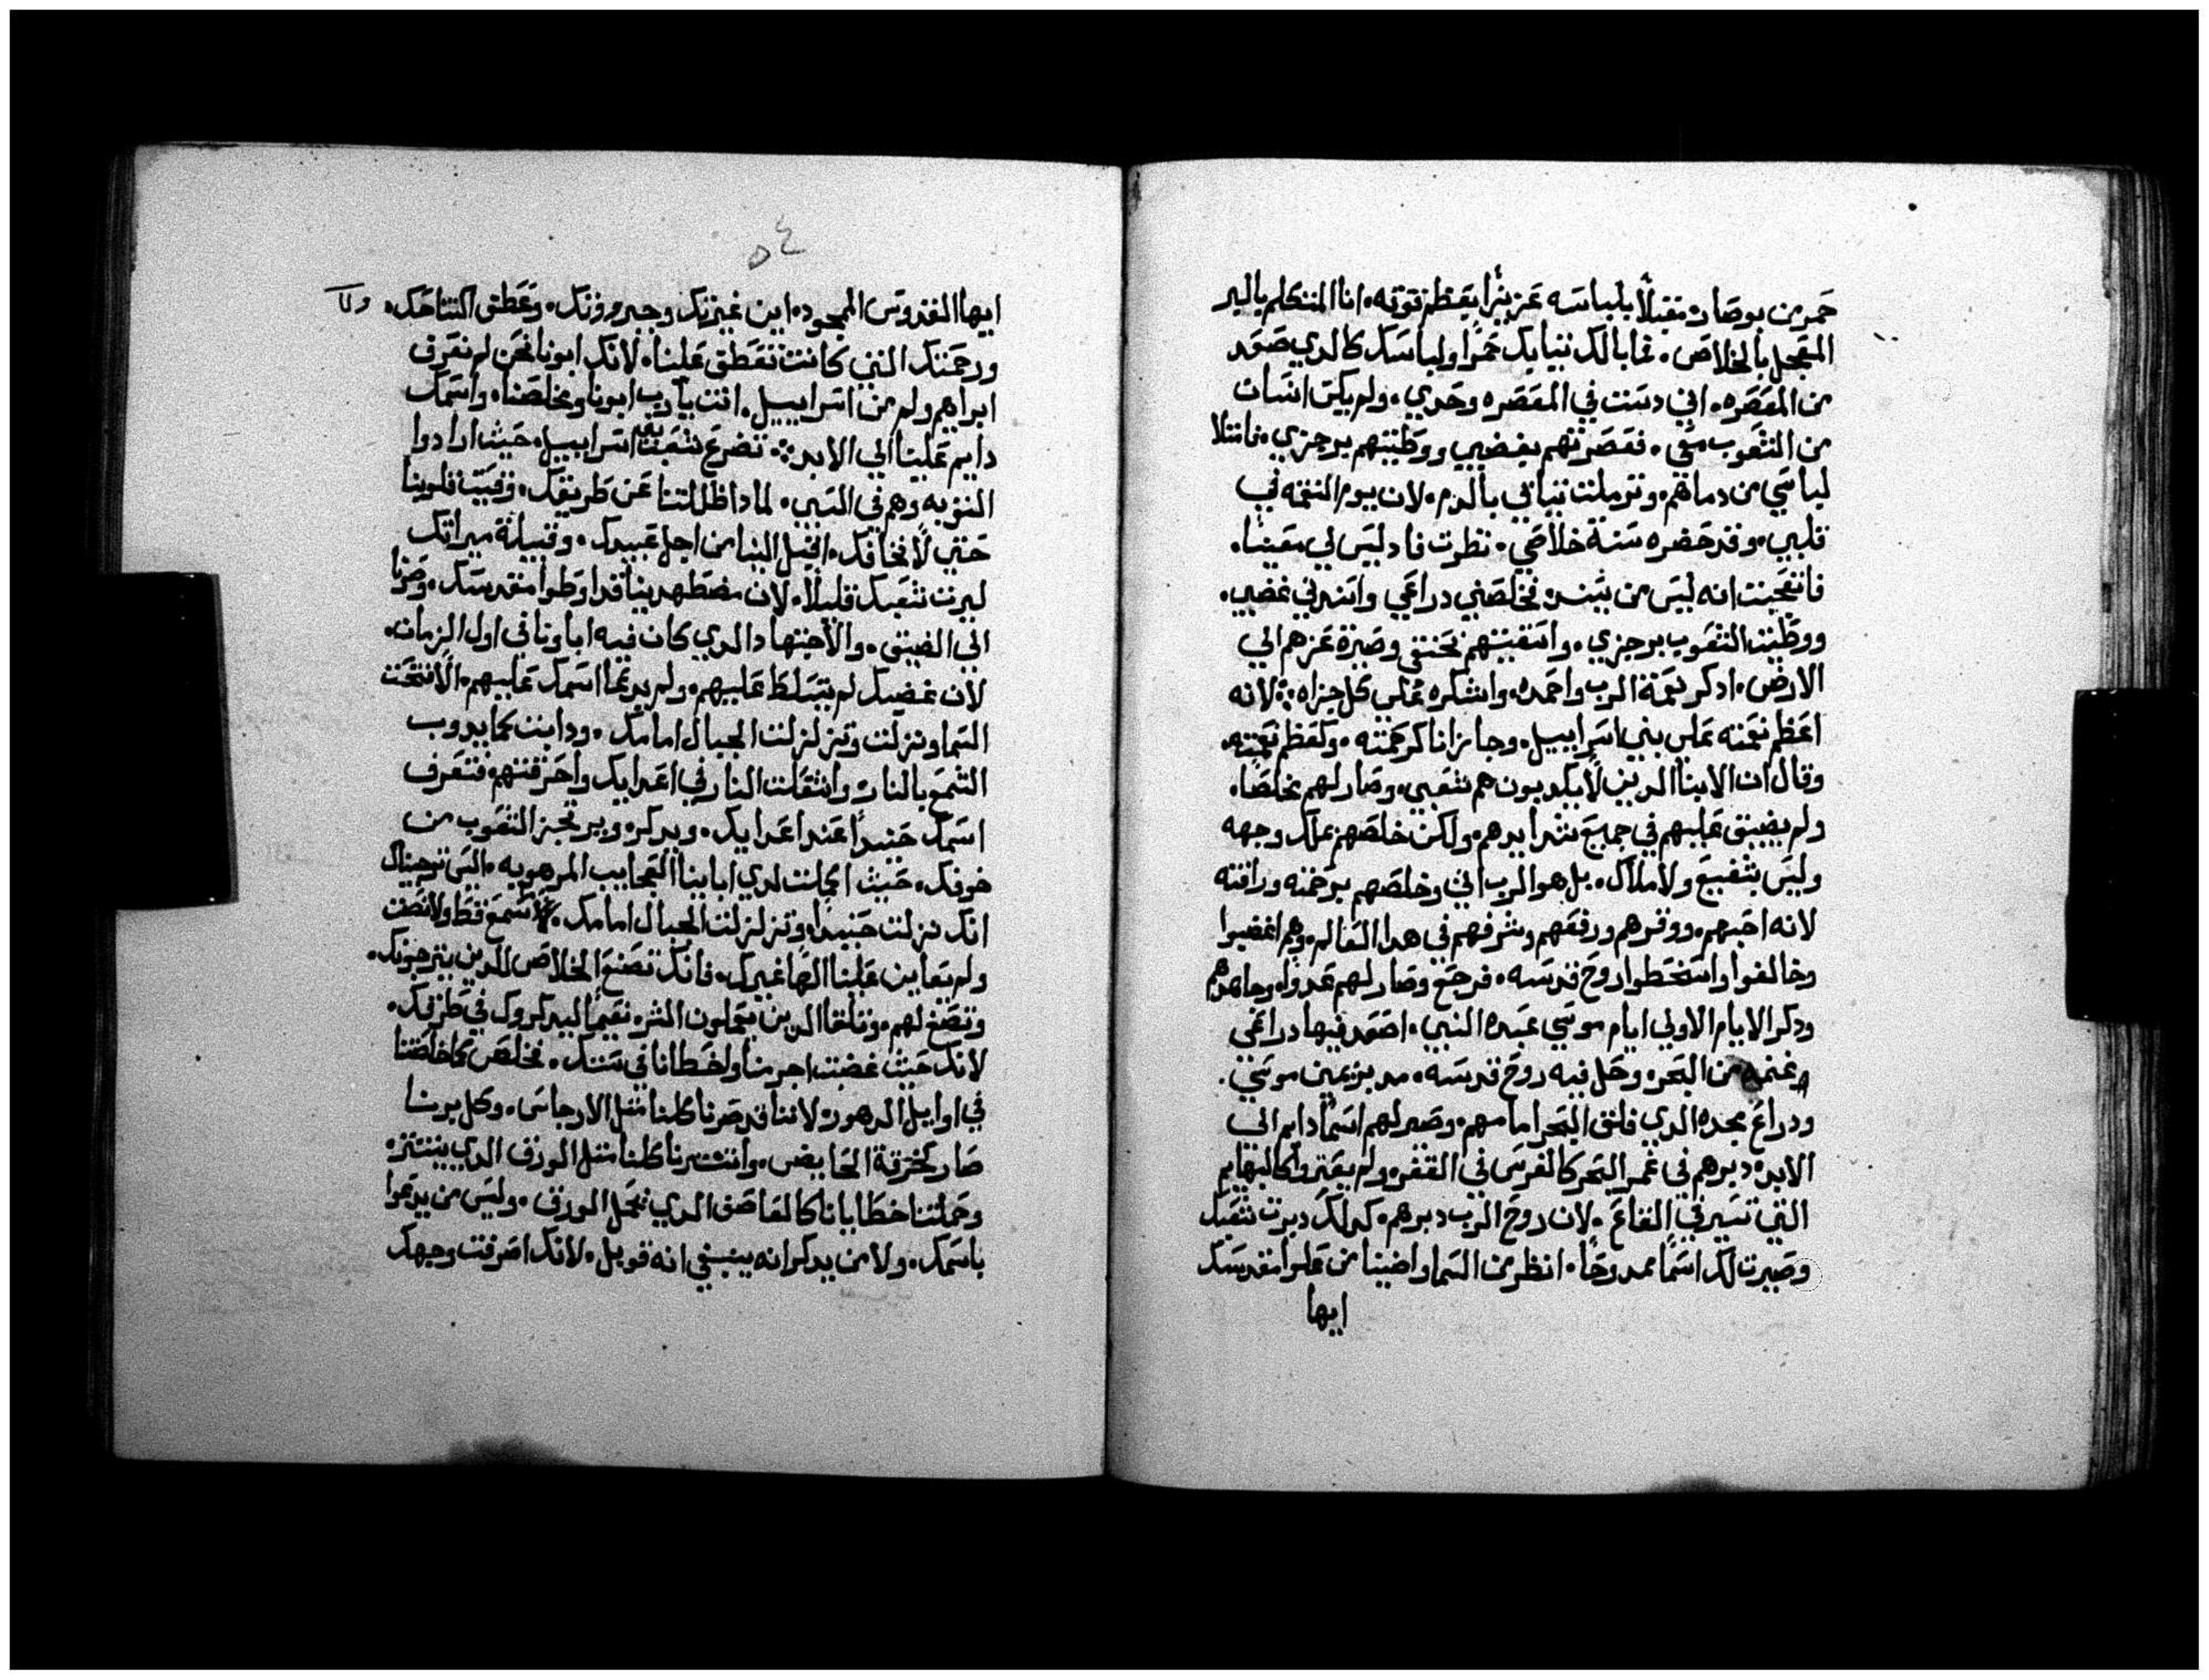 حمر من بوصار. مقبلاً بلباسه عزيزاً بعظم قوته. انا المتكلم بالبر
المعجل بالخلاص. فما بالك تيابك حمرا ولباسك كالدي صعد
من المعصره. اني دست في المعصره وحدي. ولم يكن انسان
من الشعوب معي. فعصرتهم بغضبي ووطيتهم برجزي. فامتلا
لباسي من دماهم. وترملت تيابي بالدم. لان يوم النقمه في
قلبي. وقد حضره سنة خلاصي. نظرت فاد ليس لي معينا.
فاتعجبت انه ليس من يسند. فخلصني دراعي واسندني غضبي.
ووطيت الشعوب برجزي. واسقيتهم بحنقي وصيرة عزهم الي
الارض. ادكر نعمة الرب واحمده. واشكره علي كل جزاه: لانه
اعظم نعمته علي بني اسراييل. وجازانا كرحمته. وكعظم نعمته.
وقال ان الابنا الدين لا يكدبون هم شعبي. وصار لهم مخلصا.
ولم يضيق عليهم في جميع شدايدهم. ولكن خلصهم ملاك وجهه
وليس بشفيع ولا ملاك. بل هو الرب اتي وخلصهم برحمته ورافته
لانه احبهم. ووقرهم ورفعهم وشرفهم في هدا العالم. وهم اغضبوا
وخالفوا واسخطوا روح قدسه. فرجع وصار لهم عدوا. وجاهدهم
ودكر الايام الاولي ايام موسي عبده النبي. اصعد فيها دراعي
غنمه من البحر. وحل فيه روح قدسه. مدبر يمين موسي.
ودراع مجده الدي فلق البحر امامهم. وصير لهم اسماً دايم الي
الابد. دبرهم في غمر البحر كالفرس في القفر. ولم يعتروا كالبهايم
التي تسير في القاع. لان روح الرب دبرهم. كدلك دبرت شعبك
وصيرت لك اسماً ممدوحاً. انظر من السما واضينا من علوا مقدسك
ايها
٥٤
ايها القدوس الممجود. اين غيرتك وجبروتك. وعطق اكتتاحك. ولا
ورحمتك التي كانت تعطق علينا. لانك ابونا نحن لم نعرف
ابراهيم ولم من اسراييل. انت يا رب ابونا ومخلصنا. واسمك
دايم علينا الي الابد: تضرع شعب بني اسراييل. حيث ارادوا
التوبه وهم في السبي. لمادا ظللتنا عن طريقك. وقسيت قلوبنا
حتي لا نخافك. اقبل الينا من اجل عبيدك. وقبيلة ميراتك
ليرت شعبك قليلا. لان مضطهدينا قد اوطوا مقدسك. وصرنا
الي الضيق. والاجتهاد الدي كان فيه اباونا في اول الزمان.
لان غضبك لم يتسلط عليهم. ولم يدعا اسمك عليهم. الا فتحت
السما ونزلت وتزلزلت الجبال امامك. ودابت كما يدوب
الشمع بالنار. واشتعلت النار في اعدايك واحرقتهم. فتعرف
اسمك حينيداً عند اعدايك. ويدكر. ويرتجز الشعوب من
خوفك. حيث اكملت لدي اباينا العجايب المرهوبه. التي ترجيناك
انك نزلت حينيداً. وتزلزلت الجبال امامك. لا سمع قط ولا نصت
ولم نعاين علينا الها غيرك. فانك تصنع الخلاص للدين يترجونك.
وتصنع لهم. وتلقا الدين يعملون الشر نقيماً ليدكروك في طرقك.
لانك حيث غضبت اجرمنا ولخطانا في سنك. فخلص كما خلصتنا
في اوايل الدهور. لاننا قد صرنا كلنا متل الارجاس. وكل برنا
صار كخرقة الحايض. وانتشرنا كلنا متل الورق الدي ينتتر.
وحملتنا خطايانا كالعاصف الدي تحمل الورق. وليس من يدعوا
باسمك. ولا من يدكر انه ينبغي انه قوبل. لانك اصرفت وجهك